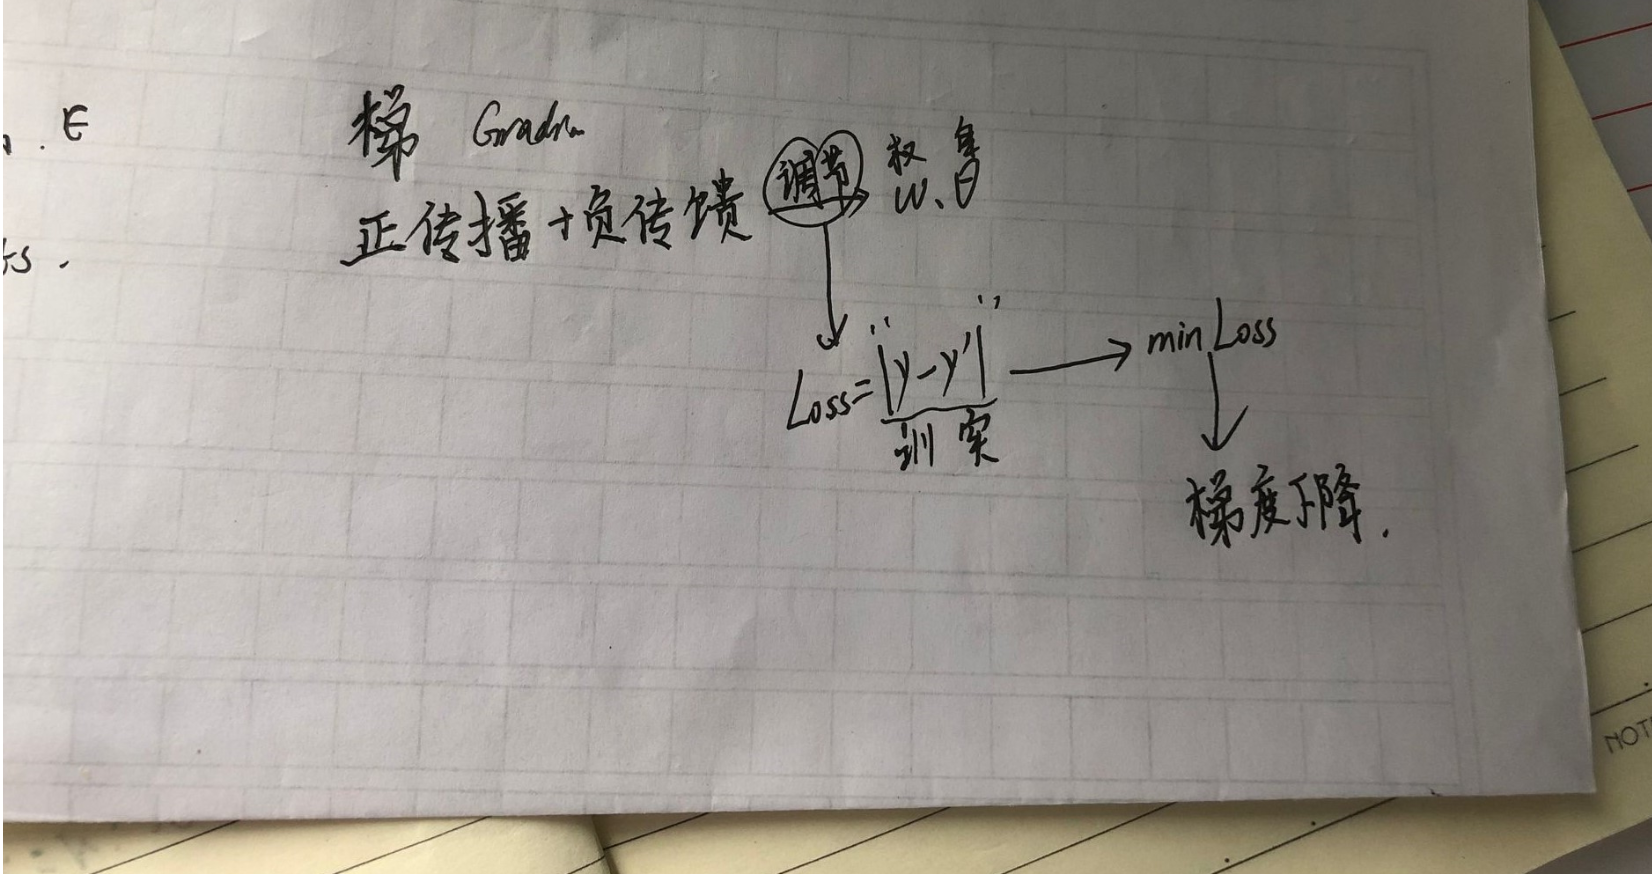 E
梯
正传播+负传馈 调节 权
W、θ
ts.
Loss="|y-y'|" min Loss
训 实
梯度下降.
NOT